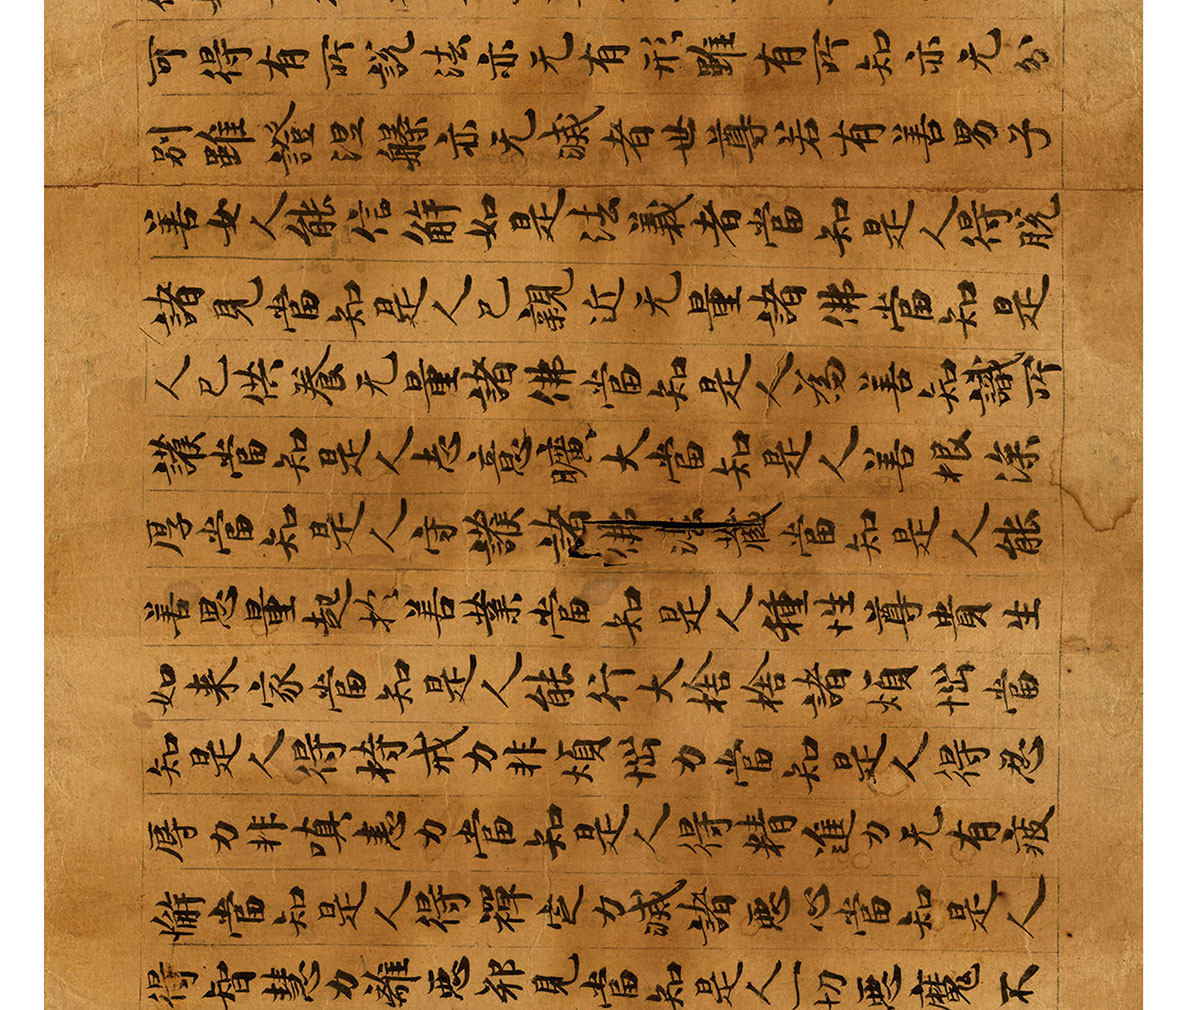 可得有所說法亦无有形雖有所知亦无分
別雖證涅槃亦无滅者世尊若有善男子
善女人能信解如是法義者當知是人得脫
諸見當知是人已親近无量諸佛當知是
人已供養无量諸佛當知是人為善知識所
護當知是人志意曠大當知是人善根深
厚當知是人守護諸佛法藏當知是人能
善思量起於善業當知是人種性尊貴生
如来家當知是人能行大捨捨諸煩惱當
知是人得持戒力非煩惱力當知是人得忍
辱力非嗔恚力當知是人得精進力无有疲
懈當知是人得禪定力滅諸惡心當知是人
得智慧力離惡邪見當知是人一切惡魔不